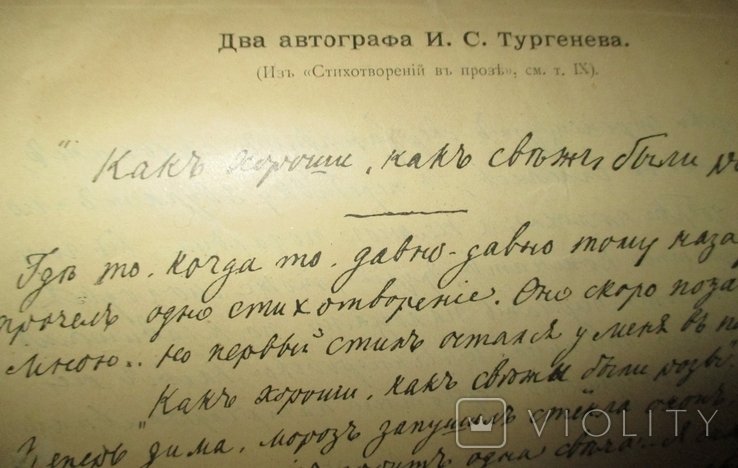 Два автографа И. С. Тургенева.
(Изъ «Стихотвореній въ прозѣ», см. т. IX).
"Какъ хороши, какъ свѣжи были ро
Гдѣ то, когда то, давно-давно тому наза
прочелъ одно стихотвореніе. Оно скоро поза
мною.. но первый стихъ остался у меня въ п
Какъ хороши, какъ свѣжи были розы
Теперь зима, морозъ запушилъ стёкла оконъ
одна свѣча..
VIOLITY